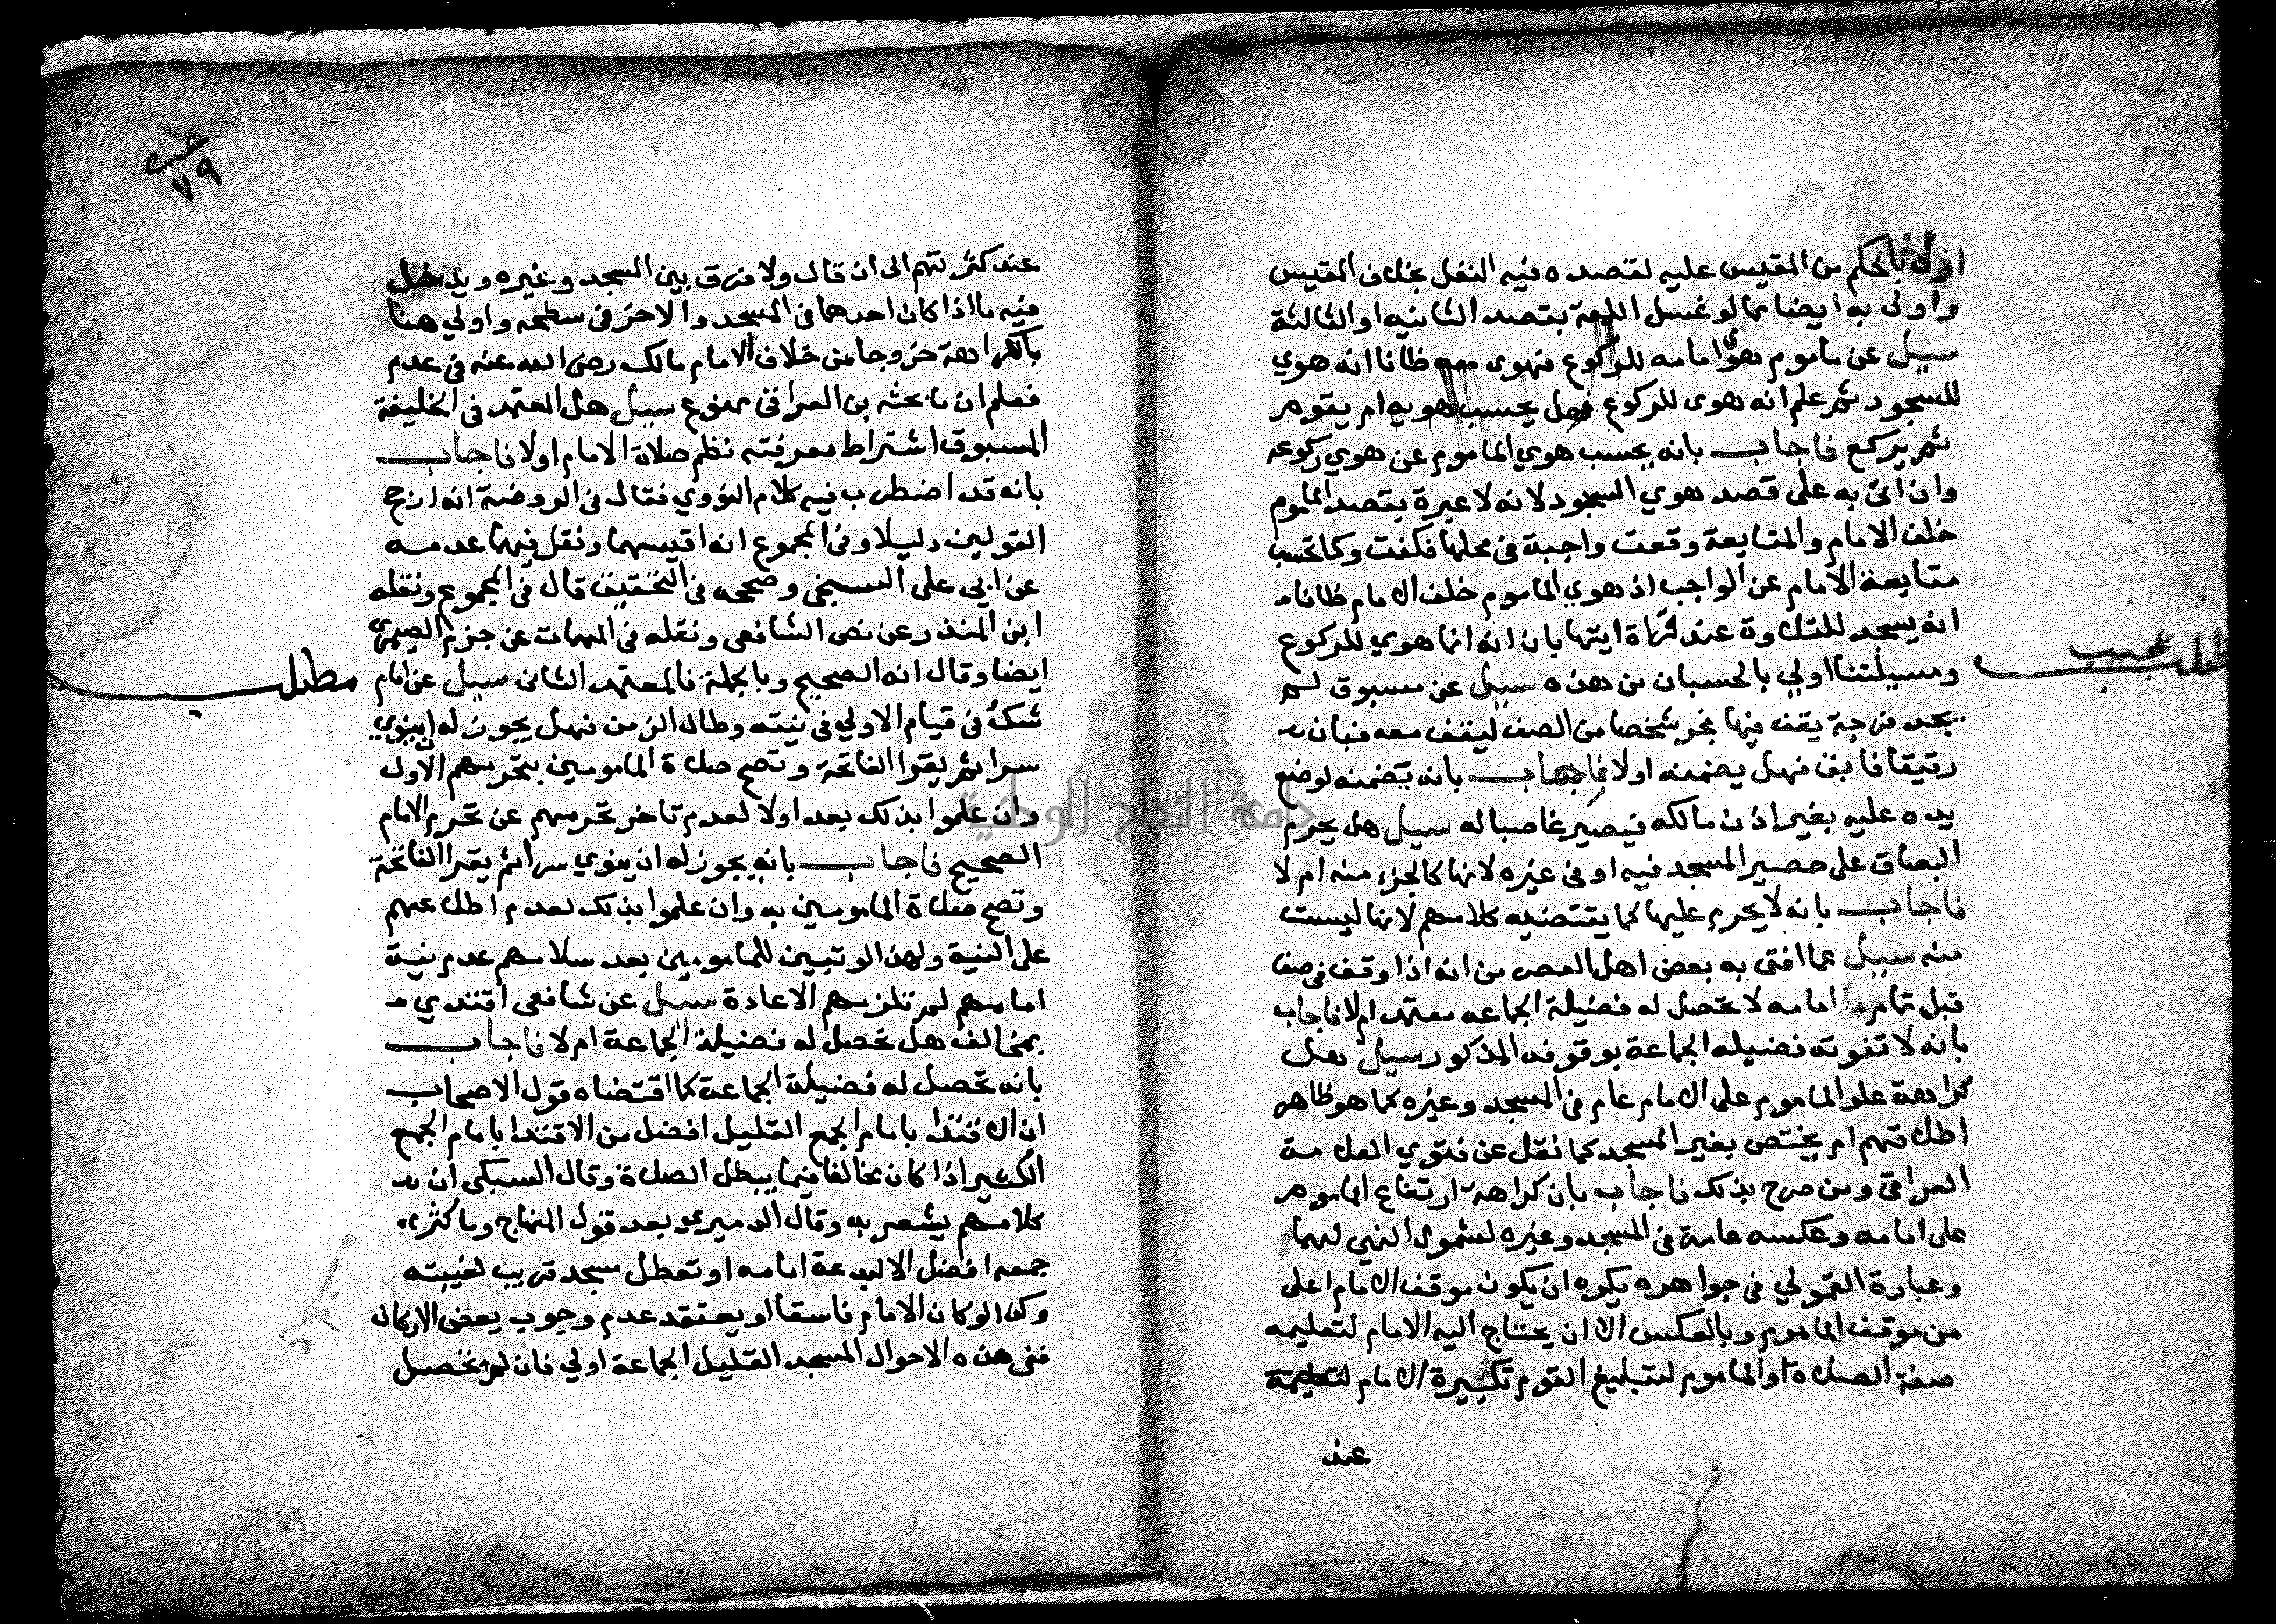 اولي بالحكم من المقيس عليه لقصده فيه النفل بخلاف المقيس
واولى به ايضا مما لو غسل اللمعة بقصد الثانيه او الثالثة
سيل عن ماموم هوى امامه للركوع فهوى معه ظانا انه هوي
للسجود ثم علم انه هوى للركوع فهل يحسب هويه ام يقوم
ثم يركع فاجاب بانه يحسب هوي الماموم عن هوي ركوعه
وان اتى به على قصد هوي السجود لانه لا عبرة بقصد الماموم
خلف الامام والمتابعة وقعت واجبة فى محلها فكفت وكما تحسب
متابعة الامام عن الواجب اذ هوي الماموم خلف الامام ظانا
انه يسجد للتلاوة عند قراة ايتها بان انه انما هوي للركوع
عجيب
مطلب
ومسيلتنا اولي بالحسبان من هذه سيل عن مسبوق لم
يجد فرجة يقف فيها فجر شخصا من الصف ليقف معه فبان
رقيقا فابق فهل يضمنه اولا فاجاب بانه يضمنه لوضع
يده عليه بغير اذن مالكه فيصير غاصبا له سيل هل يحرم
البصاق على حصير المسجد فيه او فى غيره لانها كالجزء منه ام لا
فاجاب بانه لا يحرم عليها كما يقتضيه كلامهم لانها ليست
منه سيل عما افتى به بعض اهل العصر من انه اذا وقف فى صف
قبل تمام ما امامه لا تحصل له فضيلة الجماعه معتمد ام لا فاجاب
بانه لا تفوته فضيله الجماعة بوقوفه المذكور سيل هل
كراهة علو الماموم على الامام عام فى المسجد وغيره كما هو ظاهر
اطلاقهم ام يختص بغير المسجد كما نقل عن فتوي العلامة
العراقى ومن صرح بذلك فاجاب بان كراهة ارتفاع الماموم
على امامه وعكسه عامة فى المسجد وغيره لشمول النهي لهما
وعبارة القمولي فى جواهره يكره ان يكون موقف الامام اعلى
من موقف الماموم وبالعكس الا ان يحتاج اليه الامام لتعليمه
صفة الصلاة او الماموم لتبليغ القوم تكبيرة الامام
عند
٧٩
عند كثرتهم الى ان قال ولا فرق بين المسجد وغيره ويدخل
فيه ما اذا كان احدهما فى المسجد والاخر فى سطحه واولي هنا
بالكراهة خروجا من خلاف الامام مالك رضى الله عنه فى عدم
فعلم ان ما بحثه بن العراقى ممنوع سيل هل المعتمد فى الخليفة
المسبوق اشتراط معرفته نظم صلاة الامام اولا فاجاب
بانه قد اضطرب فيه كلام النووي فقال فى الروضة انه ارجح
القولين دليلا وفى المجموع انه اقيسهما ونقل فيها عدمه
عن ابي على السنجى وصححه فى التحقيق قال فى المجموع ونقله
ابن المنذر عن نص الشافعى ونقله فى المهمات عن جزم الصيمري
ايضا وقال انه الصحيح وبالجملة فالمعتمد الثانى سيل عن امام
مطلب
شك فى قيام الاولي فى نيته وطال الزمن فهل يجوز له ان ينوي
سرا ثم يقرا الفاتحة وتصح صلاة المامومين بتحرمهم الاول
وان علموا بذلك بعد اولا لعدم تاخر تحرمهم عن تحرم الامام
الصحيح فاجاب بانه يجوز له ان ينوي سرا ثم يقرا الفاتحة
وتصح صلاة المامومين به وان علموا بذلك لعدم اطلاعهم
على النية ولهذا لو تبين للمامومين بعد سلامهم عدم نية
امامهم لم تلزمهم الاعادة سيل عن شافعى اقتدي
بمخالف هل تحصل له فضيلة الجماعة ام لا فاجاب
بانه تحصل له فضيلة الجماعة كما اقتضاه قول الاصحاب
ان الاقتدا بامام الجمع القليل افضل من الاقتدا بامام الجمع
الكثير اذا كان مخالفا فيما يبطل الصلاة وقال السبكى ان
كلامهم يشعر به وقال الدميري بعد قول المنهاج وما كثر
جمعه افضل الا لبدعة امامه او تعطل مسجد قريب لغيبته
وكذا لو كان الامام فاسقا او يعتقد عدم وجوب بعض الاركان
ففى هذه الاحوال المسجد القليل الجماعة اولي فان لم تحصل